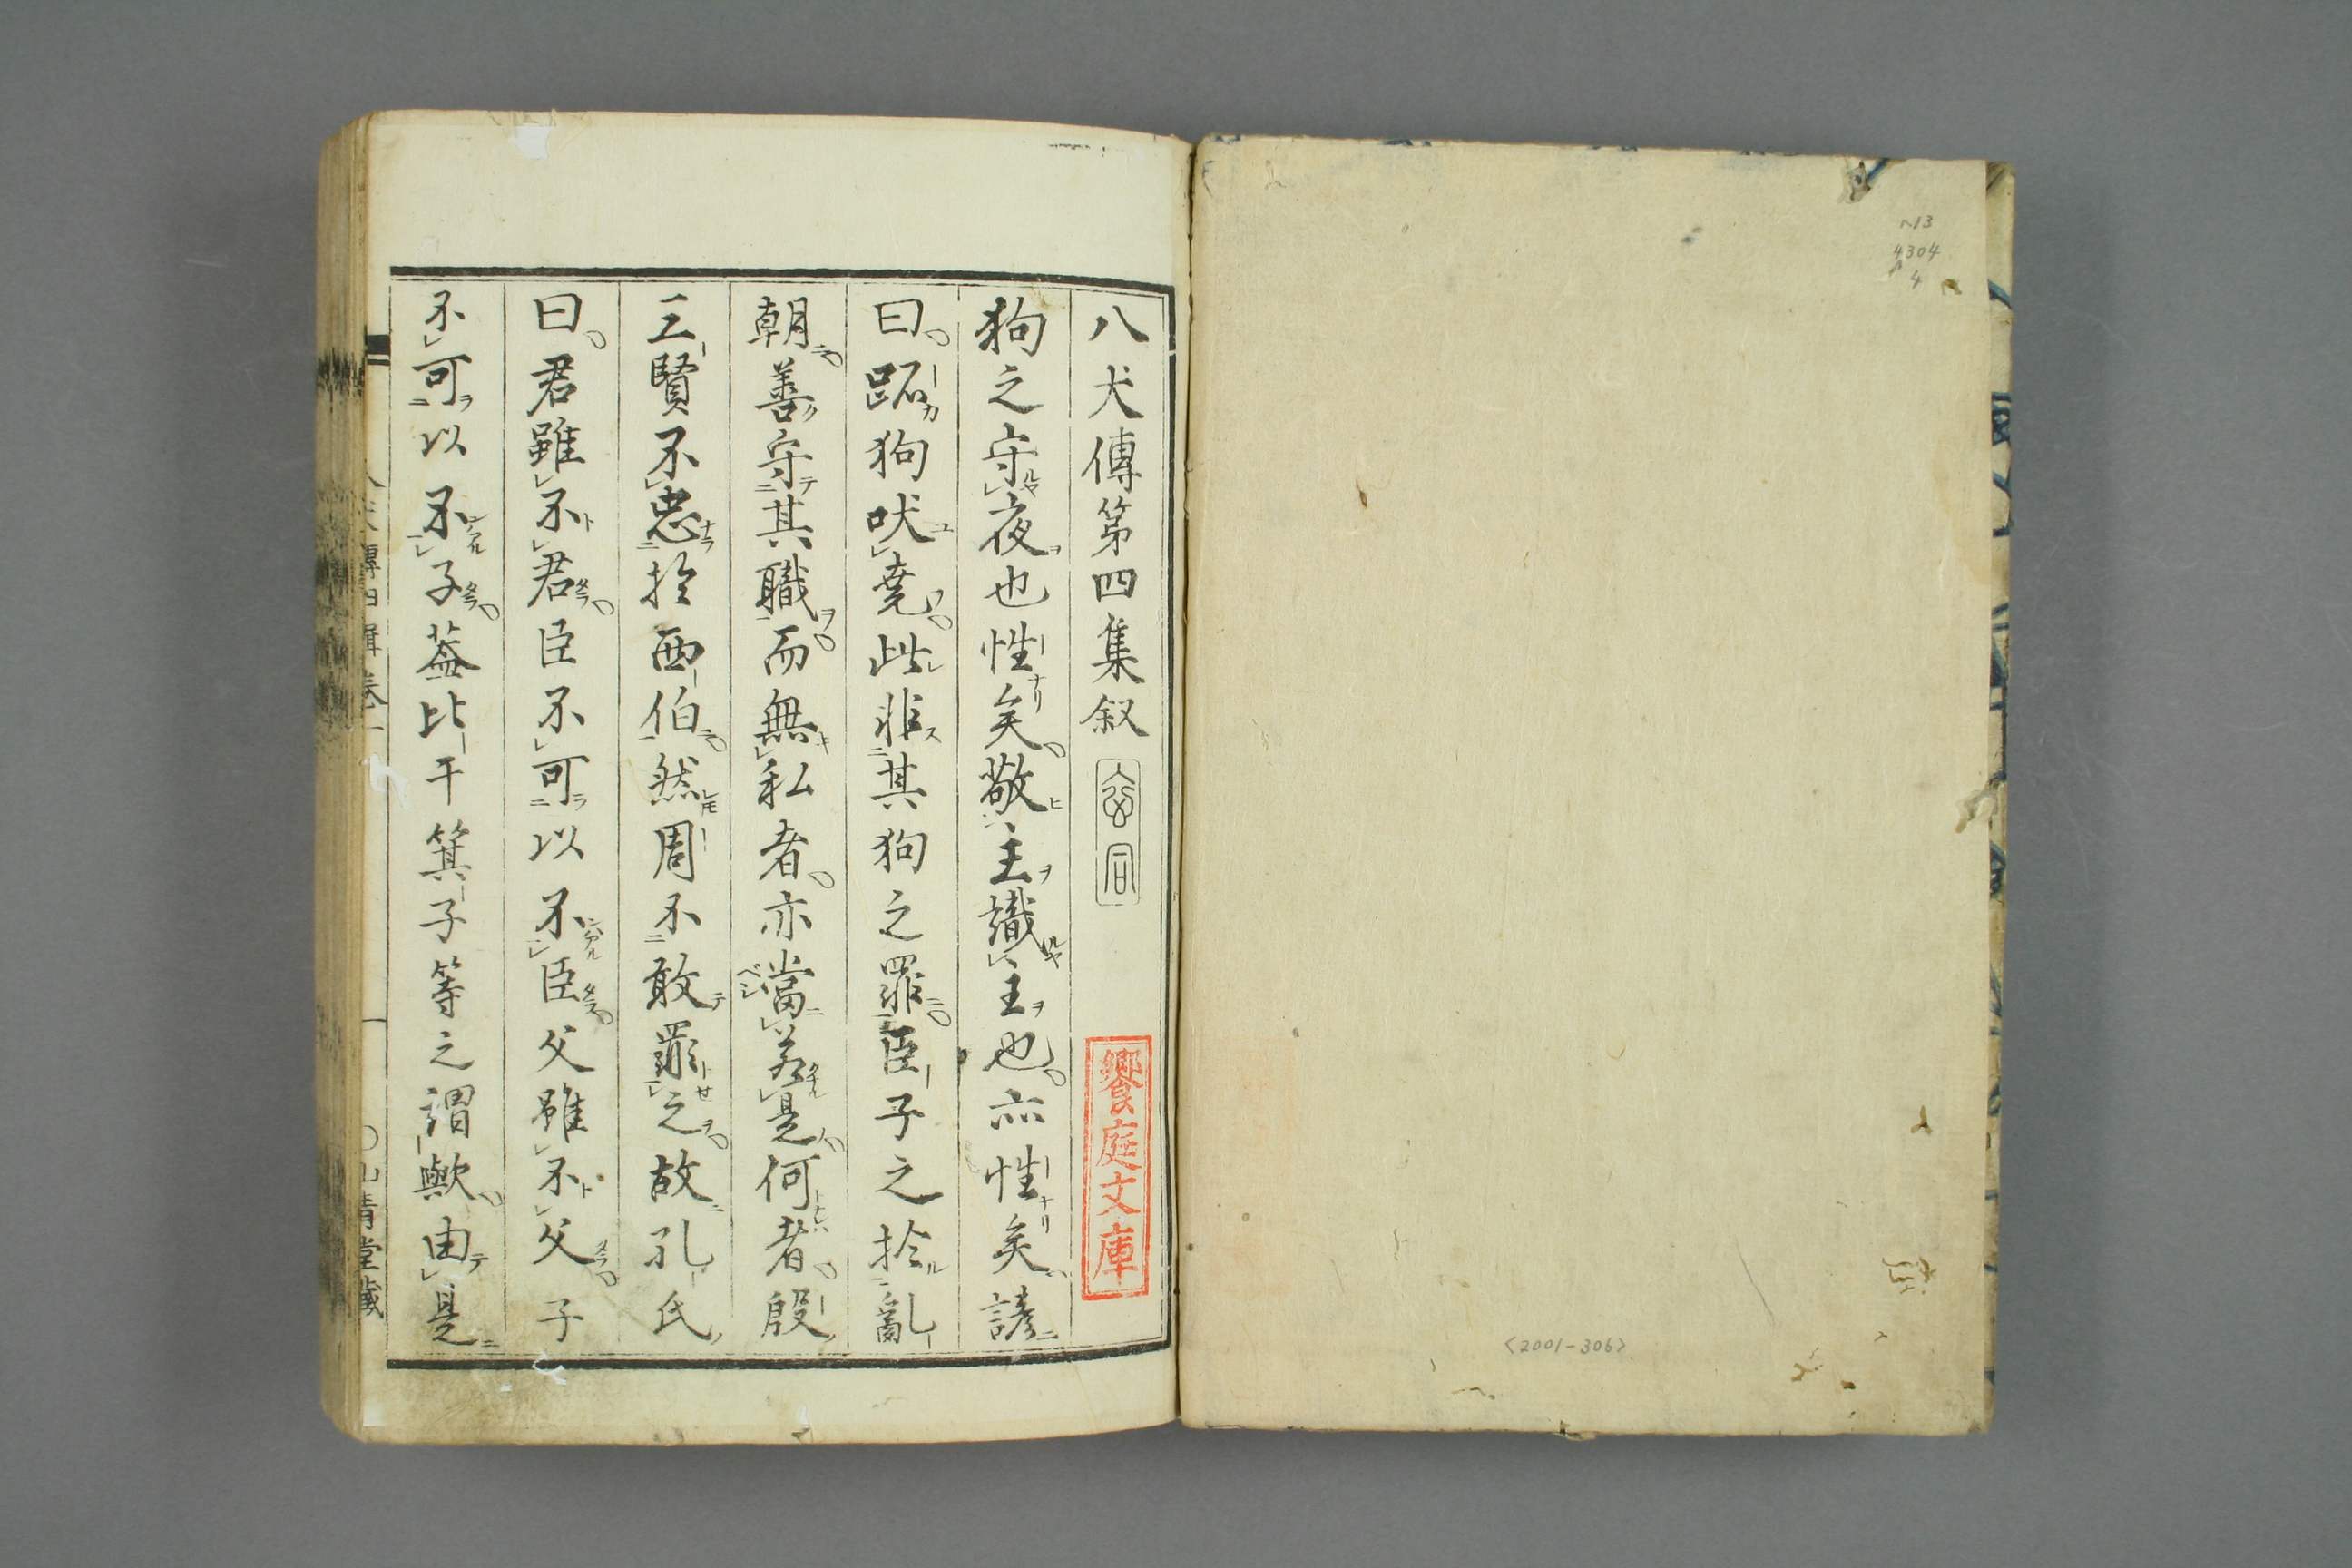 八犬傳第四集叙
饗庭文庫
狗之守夜也性矣敬主識主也亦性矣諺
曰跖狗吠堯此非其狗之罪臣子之於亂
朝善守其職而無私者亦當若是何者殷
三賢不忠於西伯然周不敢罪之故孔氏
曰君雖不君臣不可以不臣父雖不父子
不可以不子蓋比干箕子等之謂歟由是
山青堂藏
4304
4
<2001-306>